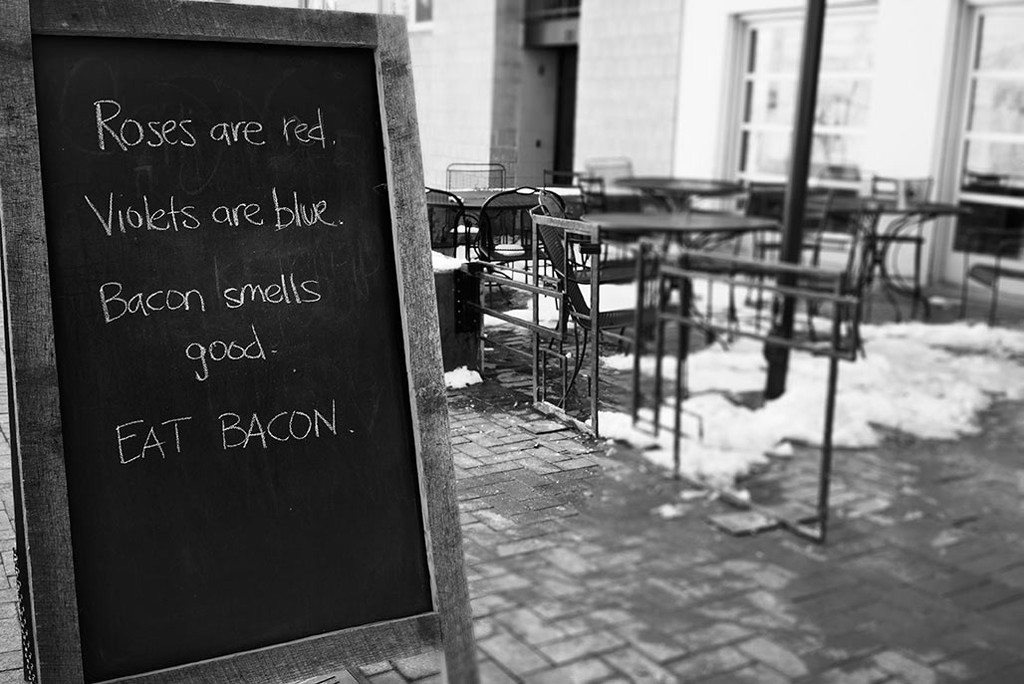 Roses are red.
Violets are blue.
Bacon smells
good.
EAT BACON.